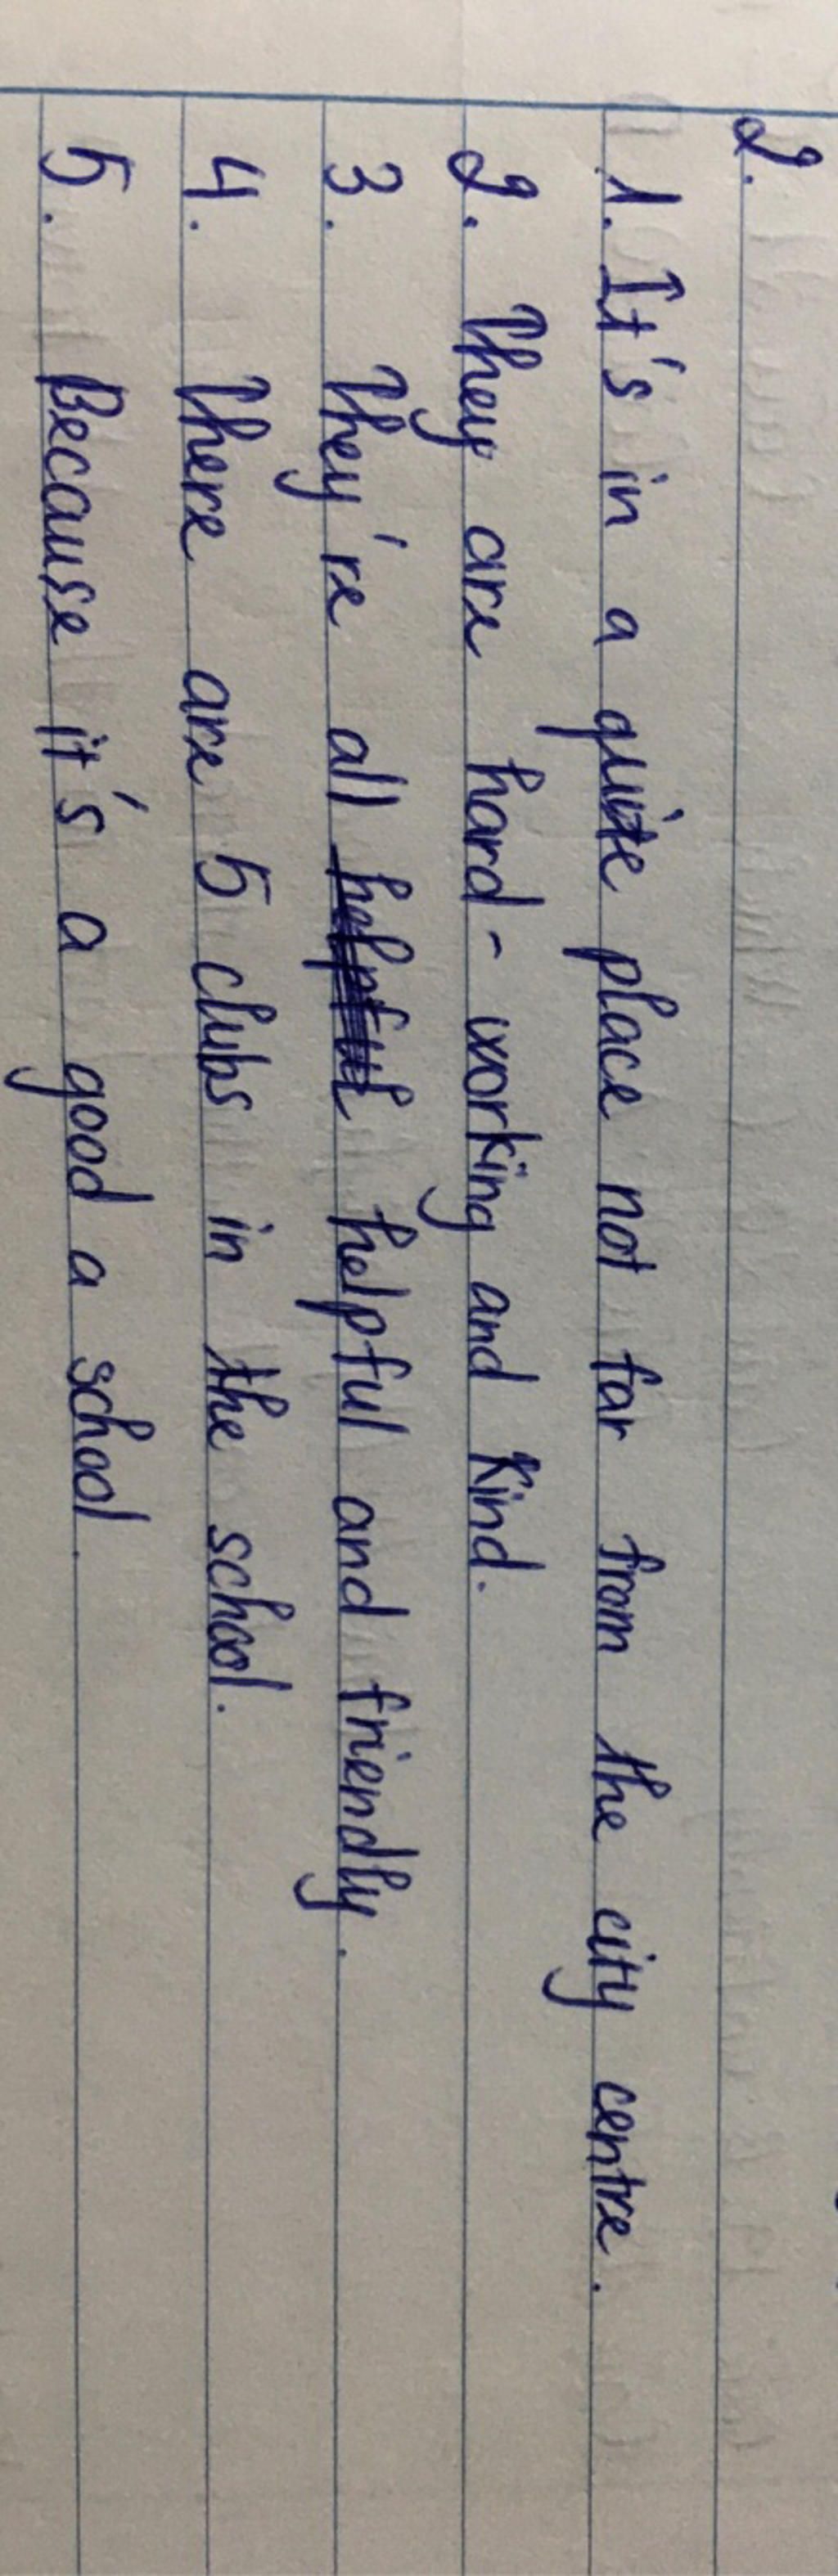 2.
1. It's in a quite place not far from the city centre.
2. They are hard-working and kind.
3. They're all helpful and friendly.
4. There are 5 clubs in the school.
5. Because it's a good a school.